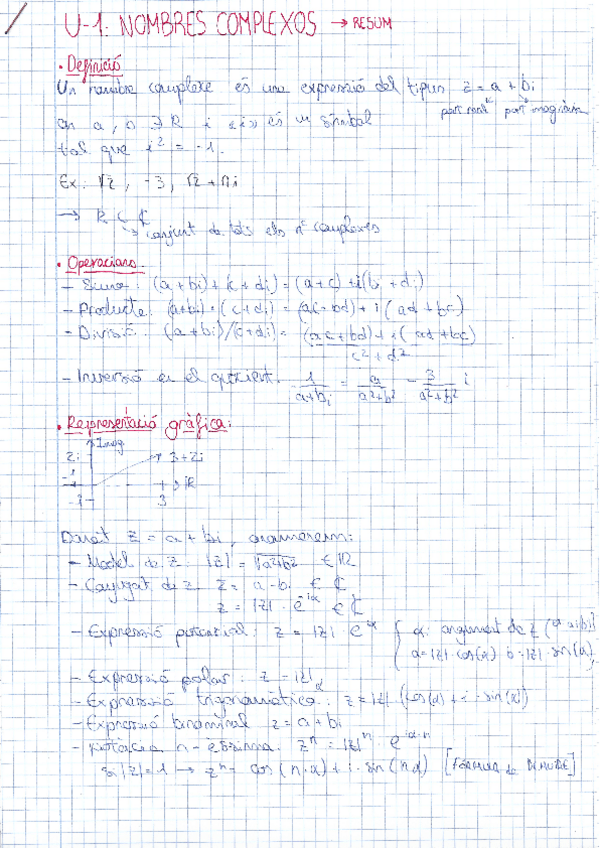 U-1. NOMBRES COMPLEXOS → RESUM
· Definició
Un nombre complexe és una expressió del tipus z = a + bi
on a, b ∋ R i «i» és un símbol part real part imaginària
tal que i² = -1.
Ex: √2, -3, √2 + πi
→ R ⊂ ₵
→ conjunt de tots els nº complexos
· Operacions
- Suma: (a + bi) + (c + di) = (a+c) + i(b + di)
- Producte: (a+bi)·(c+di) = (ac-bd) + i(ad + bc)
- Divisió: (a + bi)/(c+di) = (ac+bd)+i(ad+bc) / c²+d²
- Inversió en el quocient. 1/a+bi = a/a²+b² - 3/a²+b² i
· Representació gràfica:
Imag
2i → 3+2i
-i 3
Donat z = a + bi, anomenem:
- Mòdel de z: |z| = √a²+b² ∈ R
- Conjugat de z. z = a - bi ∈ ₵
z = |z| · e^-iα ∈ ₵
- Expressió potencial: z = |z| e^iα { α: argument de z
a=|z|·cos(α) b=|z|·sin(α)
- Expressió polar: z = |z|α
- Expressió trigonomètrica: z = |z| (cos(α) + i · sin(α))
- Expressió binominal z = a + bi
- Potència n-èssima: z^n = |z|^n · e^iα·n
si |z| = 1 → z^n = cos(n·α) + i · sin(n·α) [FÓRMULA de]